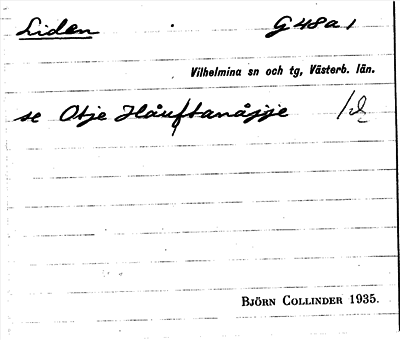 Liden G 48 a 1
Vilhelmina sn och tg, Västerb. län.
se Otje Håuftanåjje
BJÖRN COLLINDER 1935.